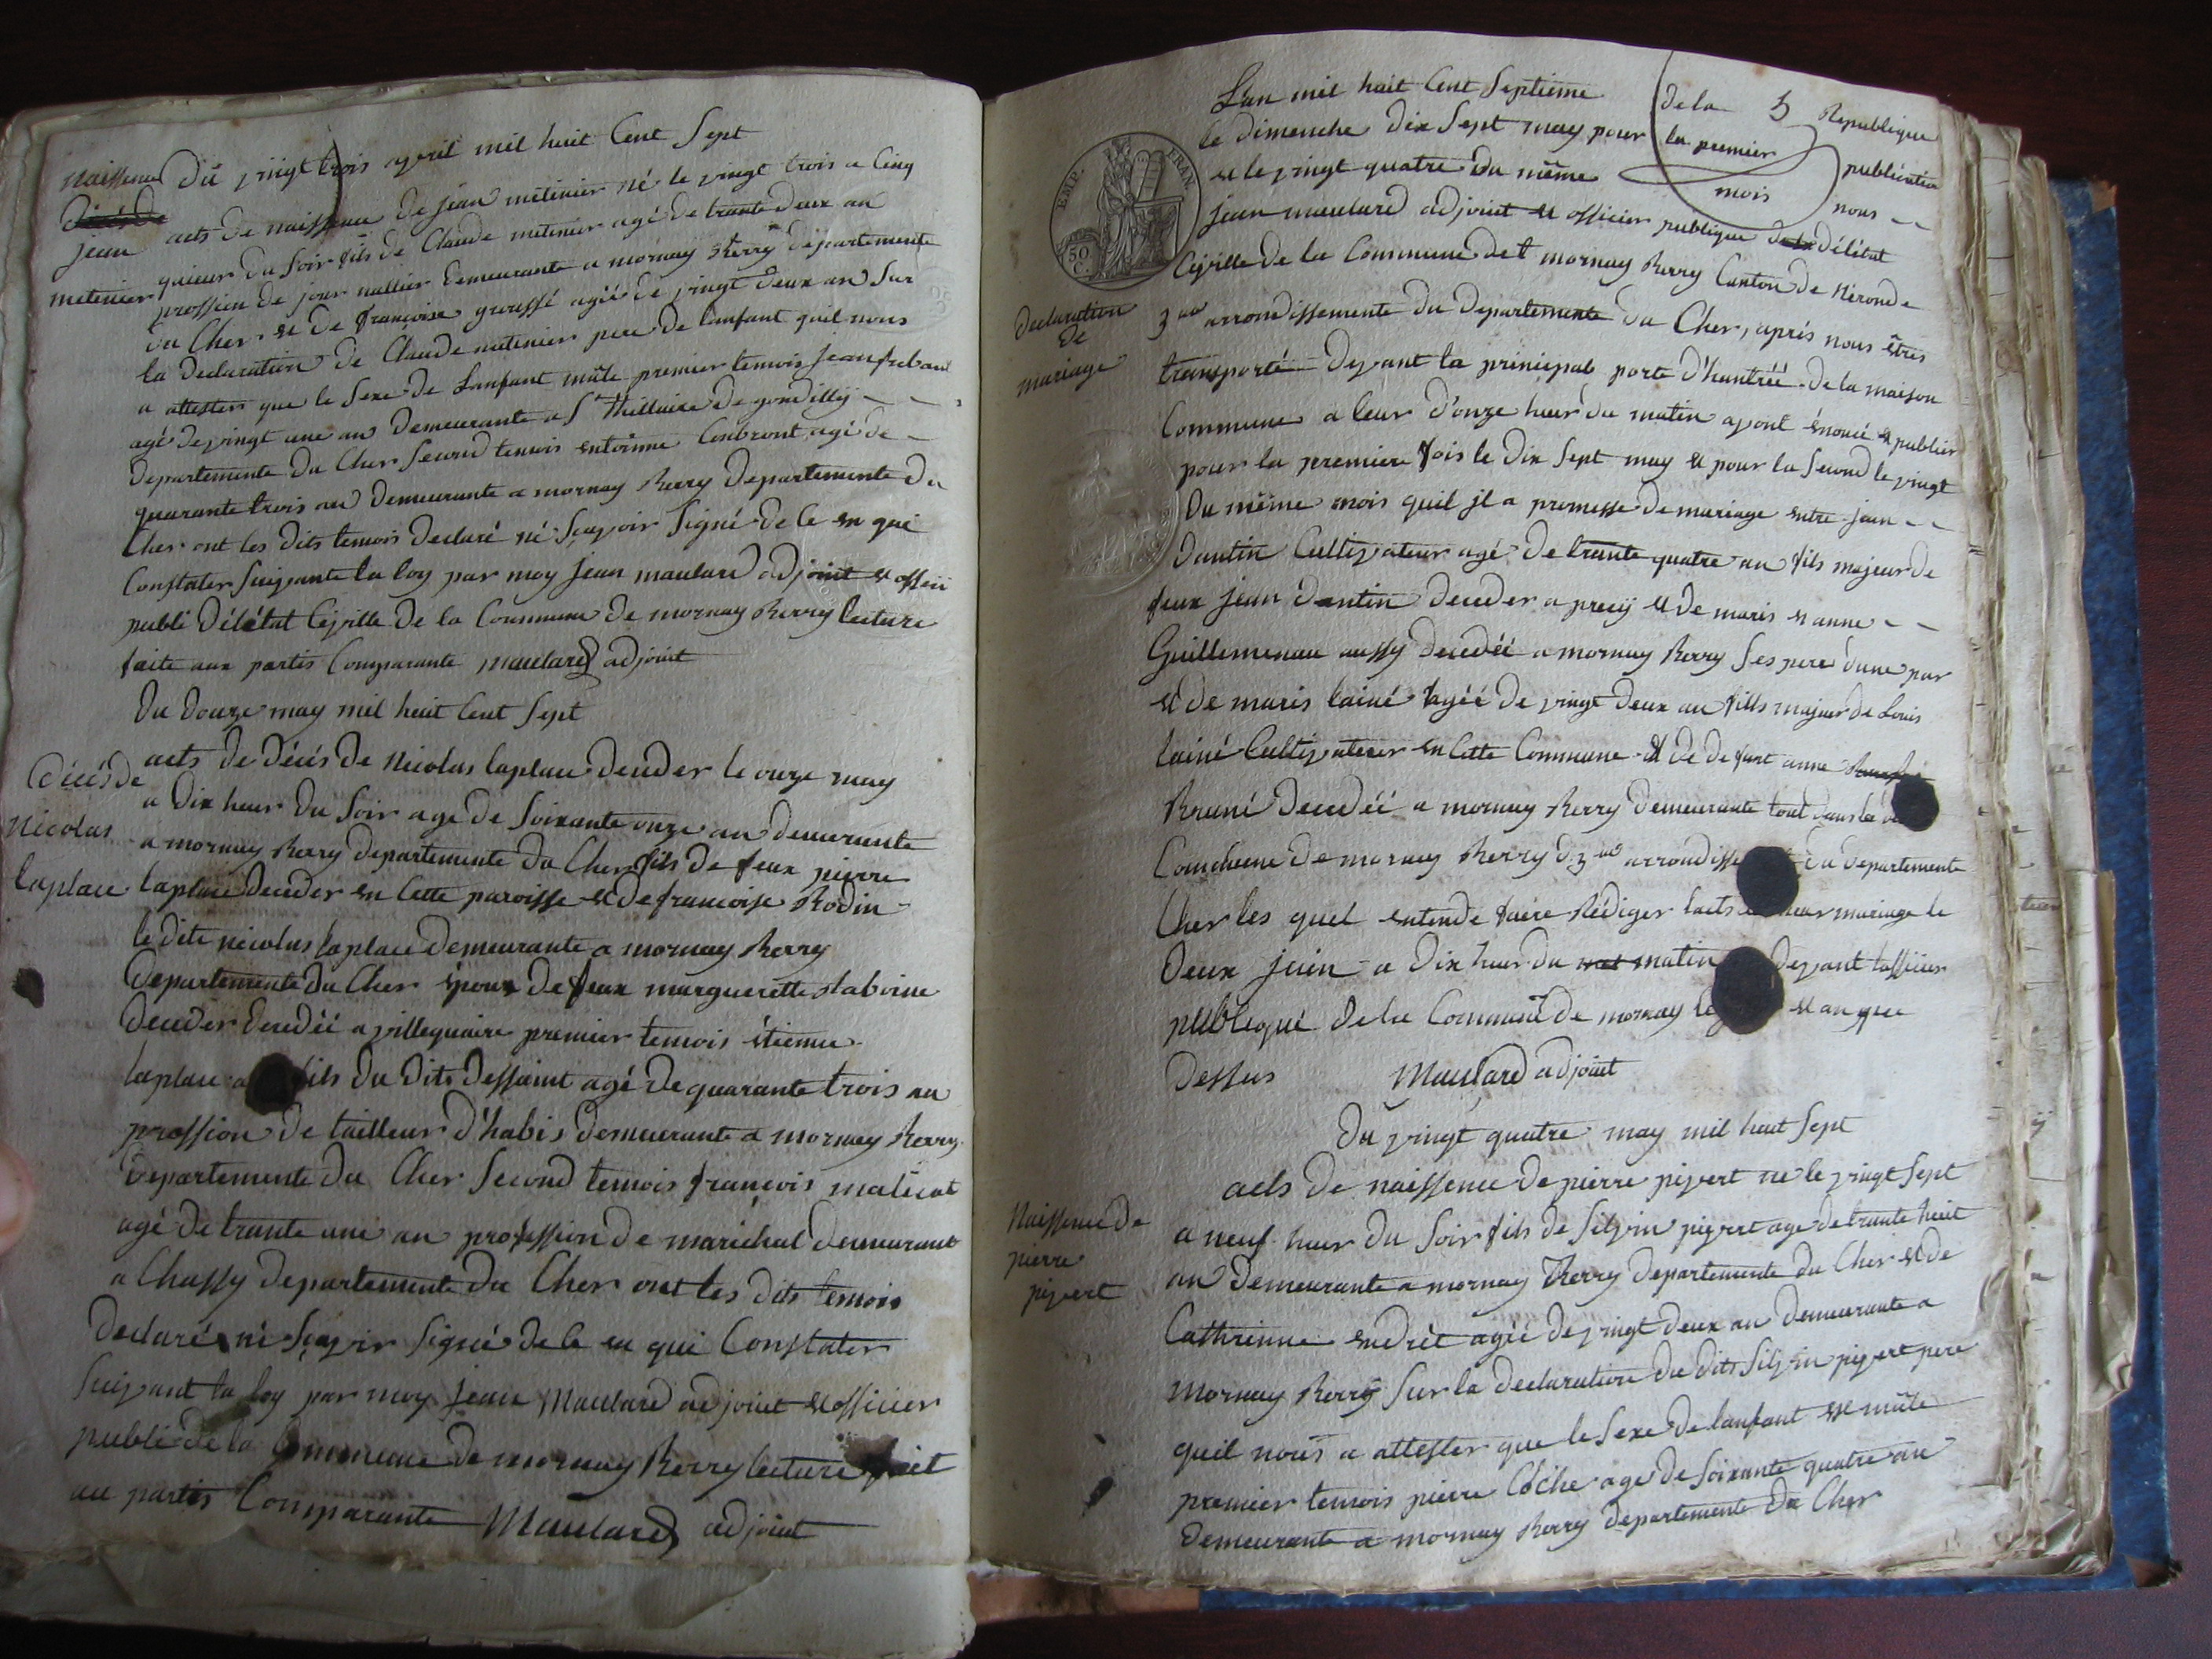 Du vingt trois avril mil huit Cent Sept
naissence
Décés de
jean
metenier
acts de naissence de jean metenier né le vingt trois a Cinq
du Soir fils de Claude metenier agé de trante deux an
de jour nallier demeurante a mornay Berry departemente
du Cher et de françoise groussé agéé de vingt deux an Sur
la declaration de Claude metenier pere de lanfant quil nous
a attester que le Sexe de lanfant mâle premier temois jean
agé de vingt une an demeurante a St hillaire de gondilly
departemente du Cher Second temois agé de
quarante trois an demeurante a mornay Berry departemente du
Cher ont les dits temois declaré né Sçavoir Signé de Ce en qui
Constater Suivante la loy par moy jean maulard adjoint et
publi délétat Civille de la Commune de mornay Berry lecture
faite aux partis Comparante maulard adjoint
Du douze may mil huit Cent Sept
Décés de
Nicolas
laplace
acts de Décés de Nicolas laplace deceder le onze may
a Dix heur du Soir age de Soixante onze an demeurante
a mornay Berry departemente du Cher fils de feux pierre
laplace deceder en Cette paroisse et de francoise Rodin
le dits nicolas laplace demeurante a mornay Berry
departemente du Cher époux de feux marguerette
deceder decedéé a villequaire premier temois étienne
laplace fils du dits deffaint agé de quarante trois an
proffsion de tailleur d'habis demeurante a mornay Berry
departemente du Cher Second temois françois malicat
agé de trante une an proffsion de maréchal demeurant
a Chassy departemente du Cher ont les dits temois
declaré né Sçavoir Signé de Ce en qui Constater
Suivant la loy par moy jean Maulard adjoint et officier
publi de la Commune de mornay Berry lecture fait
au partis Comparante Maulard adjoint
EMP. FRAN.
50 C.
L'an mil huit Cent Septieme de la République
le dimenche dix Sept may pour la premier publication
et le vingt quatre du même mois nous
jean maulard adjoint et officier publique de la délétat
Civille de la Commune det mornay Berry Canton de Néronde
declaration
de
mariage
3me arrondissemente du Departemente du Cher, aprés nous êtres
transporté devant la principal porte d'hantréé de la maison
Commune a leur d'onze heur du matin ayont énoncé et publier
pour la premiere fois le dix Sept may et pour la Second le vingt
du même mois quil il a promesse de mariage entre jean
dantin Cultivateur agé de trante quatre an fils majeur de
feux jean dantin deceder a precy et de maris et anne
Guillemenau aussy decedéé a mornay Berry Ses pere dune par
et de maris lainé agéé de vingt deux an fills majeur de Louis
lainé Cultivateur en Cette Commune et de defunt anne
Bruné decedéé a mornay Berry demeurante tout dans la
Commune de mornay Berry d. 3me du departemente
Cher les quel entende faire Rédiger lacts mariage le
deux juin a Dix heur du mat matin devant lofficier
publiqué de la Commune de mornay et an que
dessus Maulard adjoint
Du vingt quatre may mil huit Sept
Naissence de
pierre
pivert
acts de naissence de pierre pivert né le vingt Sept
a neuf heur du Soir fils de Silvin pivert age de trante huit
an demeurante a mornay Berry departemente du Cher et de
Cathrienne endrèt agéé de vingt deux an demeurante a
mornay Berry Sur la declaration du dits Silvin pivert pere
quil nous a attester que le Sexe de lanfant et mâle
premier temois pierre Coche age de Soixante quatre an
demeurante a mornay Berry departemente du Cher